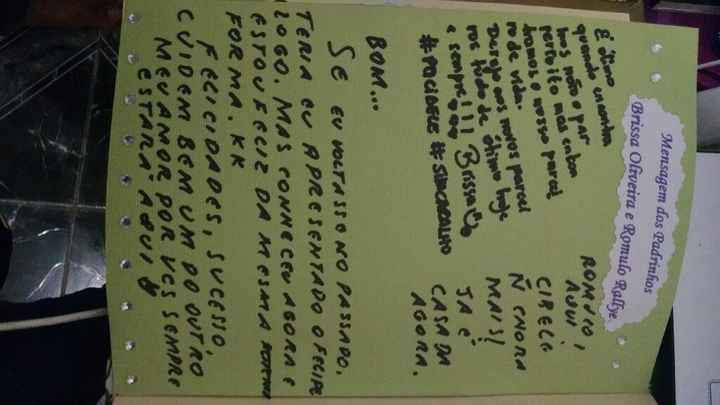 Mensagem dos Padrinhos
Brissa Oliveira e Romulo Rallye
É ótimo
quando encontra
mos não o par
perfeito mas
damos o nosso parcel
ro de vida.
Desejo aos novos parcei
ros tudo de ótimo hoje
e sempre!!! Brissa
#PACIDEUS #SIMCARALHO
AQUI
CIRELG
Ñ CHORA
MAIS!
JA É
CASADA
AGORA.
BOM...
SE EU VOLTASSE NO PASSADO,
TERIA EU APRESENTADO O FELIPE
LOGO. MAS CONHECEU AGORA E
ESTOU FELIZ DA MESMA
FORMA. KK
FELICIDADES, SUCESSO,
CUIDEM BEM UM DO OUTRO
MEU AMOR POR VCS SEMPRE
ESTARÁ AQUI